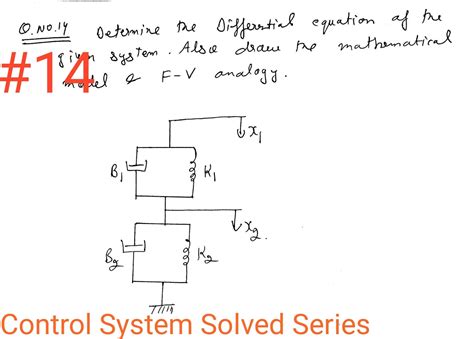 Q.NO.14 Determine the Differential equation of the
given system. Also draw the mathematical
model & F-V analogy.
#14
x1
B1 K1
x2.
B2 K2
Control System Solved Series